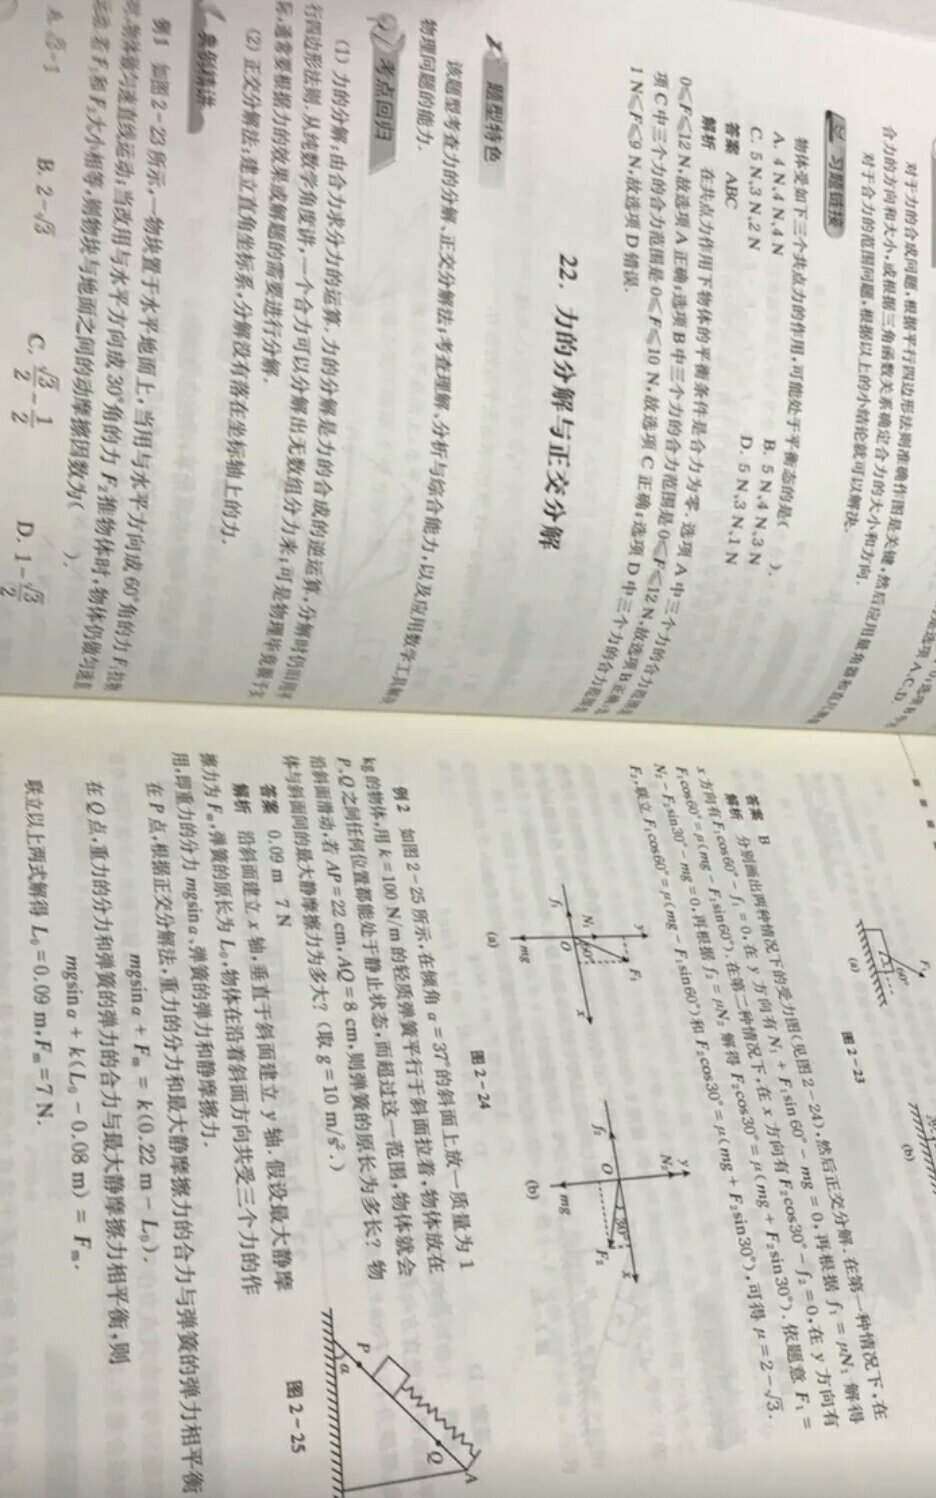 对于力的合成问题,根据平行四边形法则准确作图是关键,然后应用
合力的方向和大小,或根据三角函数关系确定合力的大小和方向.
对于合力的范围问题,根据以上的小结论就可以解决.
习题链接
物体受如下三个共点力的作用,可能处于平衡态的是(  ).
A. 4 N、4 N、4 N  B. 5 N、4 N、3 N
C. 5 N、3 N、2 N  D. 5 N、3 N、1 N
答案 ABC
解析 在共点力作用下物体的平衡条件是合力为零. 选项 A 中三个力的合力范围
0≤F≤12 N,故选项 A 正确;选项 B 中三个力的合力范围是 0≤F≤12 N,故选项 B 正确;
项 C 中三个力的合力范围是 0≤F≤10 N,故选项 C 正确;选项 D 中三个力的合力范围
1 N≤F≤9 N,故选项 D 错误.
22. 力的分解与正交分解
题型特色
该题型考查力的分解、正交分解法;考查理解、分析与综合能力,以及应用数学工具
物理问题的能力.
考点回归
(1) 力的分解:由合力求分力的运算. 力的分解是力的合成的逆运算,分解时仍旧用
行四边形法则. 从纯数学角度讲,一个合力可以分解出无数组分力来;可是物理毕竟
际,通常要根据力的效果或解题的需要进行分解.
(2) 正交分解法:建立直角坐标系,分解没有落在坐标轴上的力.
典例精讲
例1 如图 2-23 所示,一物块置于水平地面上,当用与水平方向成 60°角的力 F₁拉物
物体做匀速直线运动;当改用与水平方向成 30°角的力 F₂推物体时,物体仍做匀速直
若 F₁和 F₂大小相等,则物块与地面之间的动摩擦因数为(  ).
A. √3-1  B. 2-√3  C. √3/2-1/2  D. 1-√3/2
60°
(a)
(b)
图 2-23
答案 B
解析 分别画出两种情况下的受力图(见图 2-24),然后正交分解. 在第一种情况下,在
x 方向有 F₁cos60°-f₁=0,在 y 方向有 N₁+F₁sin60°-mg=0,再根据 f₁=μN₁ 解得
F₁cos60°=μ(mg-F₁sin60°). 在第二种情况下,在 x 方向有 F₂cos30°-f₂=0,在 y 方向有
N₂-F₂sin30°-mg=0,再根据 f₂=μN₂ 解得 F₂cos30°=μ(mg+F₂sin30°). 依题意 F₁=
F₂,联立 F₁cos60°=μ(mg-F₁sin60°)和 F₂cos30°=μ(mg+F₂sin30°),可得 μ=2-√3.
y
F₁
N₁
60°
f₁
O
x
mg
(a)
y
N₂
f₂
O
30°
x
F₂
mg
(b)
图 2-24
例2 如图 2-25 所示,在倾角 α=37°的斜面上放一质量为 1
kg 的物体,用 k=100 N/m 的轻质弹簧平行于斜面拉着,物体放在
P、Q 之间任何位置都能处于静止状态,而超过这一范围,物体就会
沿斜面滑动,若 AP=22 cm,AQ=8 cm,则弹簧的原长为多长? 物
体与斜面间的最大静摩擦力为多大? (取 g=10 m/s².)
A
Q
P
α
图 2-25
答案 0.09 m 7 N
解析 沿斜面建立 x 轴,垂直于斜面建立 y 轴. 假设最大静摩
擦力为 Fₘ,弹簧的原长为 L₀,物体在沿着斜面方向共受三个力的作
用,即重力的分力 mgsinα、弹簧的弹力和静摩擦力.
在 P 点,根据正交分解法,重力的分力和最大静摩擦力的合力与弹簧的弹力相平衡
mgsinα+Fₘ=k(0.22 m-L₀).
在 Q 点,重力的分力和弹簧的弹力的合力与最大静摩擦力相平衡,则
mgsinα+k(L₀-0.08 m)=Fₘ.
联立以上两式解得 L₀=0.09 m,Fₘ=7 N.